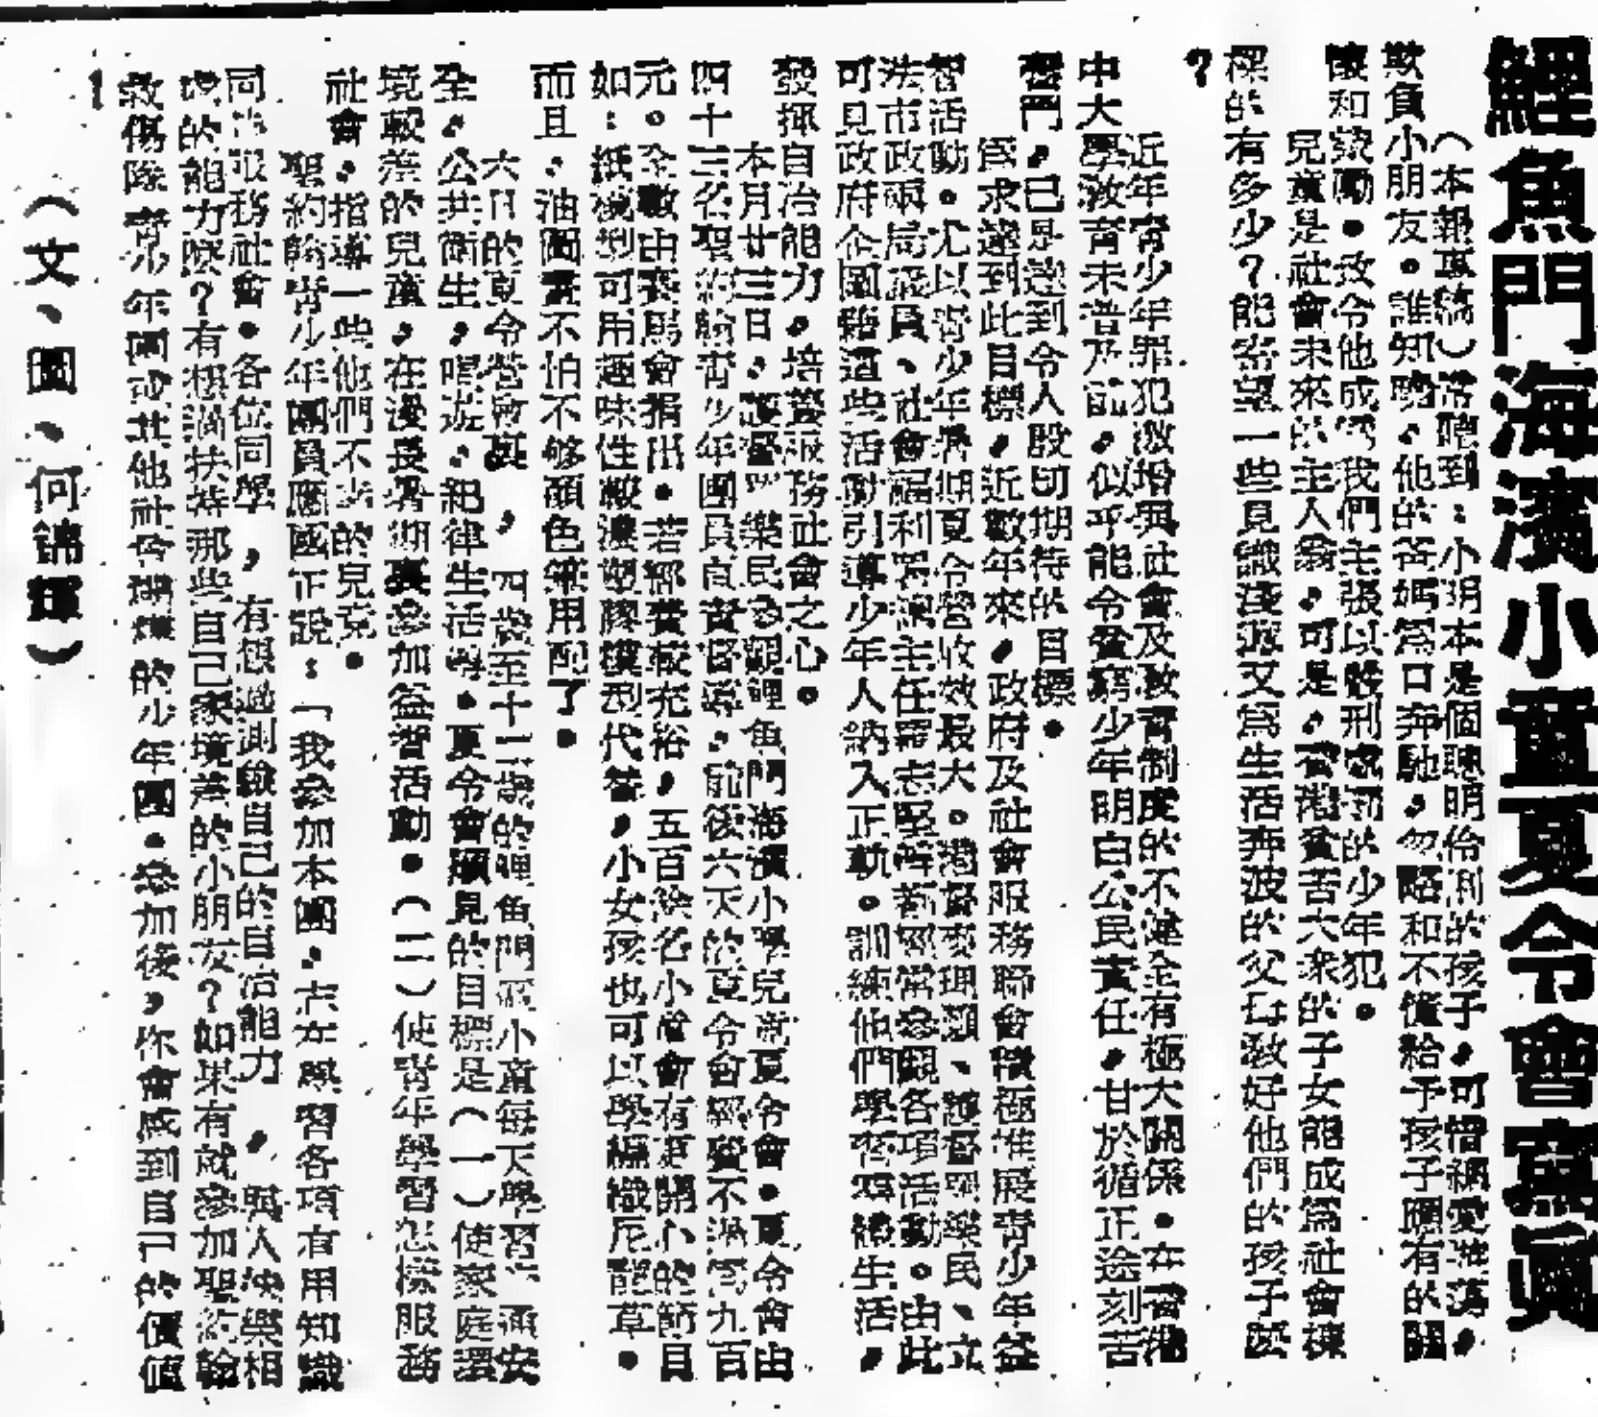 鯉魚門海濱小童夏令會寫眞
（本報專稿）常聽到：小明本是個聰明伶俐的孩子，可惜稱愛
欺負小朋友。誰知曉，他的爸媽爲口奔馳，忽略和不懂給予孩子應有的關
懷和鼓勵。致令他成爲我們主張以體刑處罰的少年犯。
兒童是社會未來的主人翁，可是，香港貧苦大衆的子女能成爲社會棟
樑的有多少？能寄望一些見識淺薄又爲生活奔波的父母教好他們的孩子麽
？
近年靑少年罪犯激增與社會及教育制度的不健全有極大關係。在香港
中大學教育未普及前，似乎能令貧窮少年明白公民責任，甘於循正途刻苦
奮鬥，已是達到令人殷切期待的目標。
爲求達到此目標，近數年來，政府及社會服務聯會積極推展靑少年益
智活動。尤以靑少年暑期夏令營收效最大。港督麥理浩、護督羅樂民、立
法市政兩局議員、社會福利署 主任 志堅等 常參觀各項活動。由此
可見政府企圖藉這些活動引導少年人納入正軌。訓練他們學習 生活，
發揮自治能力，培養服務社會之心。
本月廿三日，護督羅樂民參觀鯉魚門海濱小學兒童夏令會。夏令會由
四十三名聖約翰靑少年團員負責督導，前後六天的夏令會經費不過爲九百
元。全數由賽馬會捐出。若經費較充裕，五百餘名小童會有更開心的節目
如：紙 可用趣味性較濃塑膠模型代替，小女孩也可以學編織尼龍草。
而且，油圖畫不怕不够顏色筆用了。
六日的夏令營會裏，四歲至十二歲的鯉魚門區小童每天學習 、通安
全，公共衞生，唱遊，紀律生活等。夏令會顯見的目標是（一）使家庭環
境較差的兒童，在漫長暑期裏參加益智活動。（二）使靑年學習怎樣服務
社會，指導一些他們不 的兒童。
聖約翰靑少年團員應國正說：「我參加本團，志在學習各項有用知識
同時服務社會。各位同學，有想過測驗自己的自治能力，與人快樂相
處的能力麽？有想過扶持那些自己家境差的小朋友？如果有就參加聖約翰
救傷隊靑少年團或其他社 的少年團。參加後，你會感到自己的價值
！
（文、圖、何錦輝）